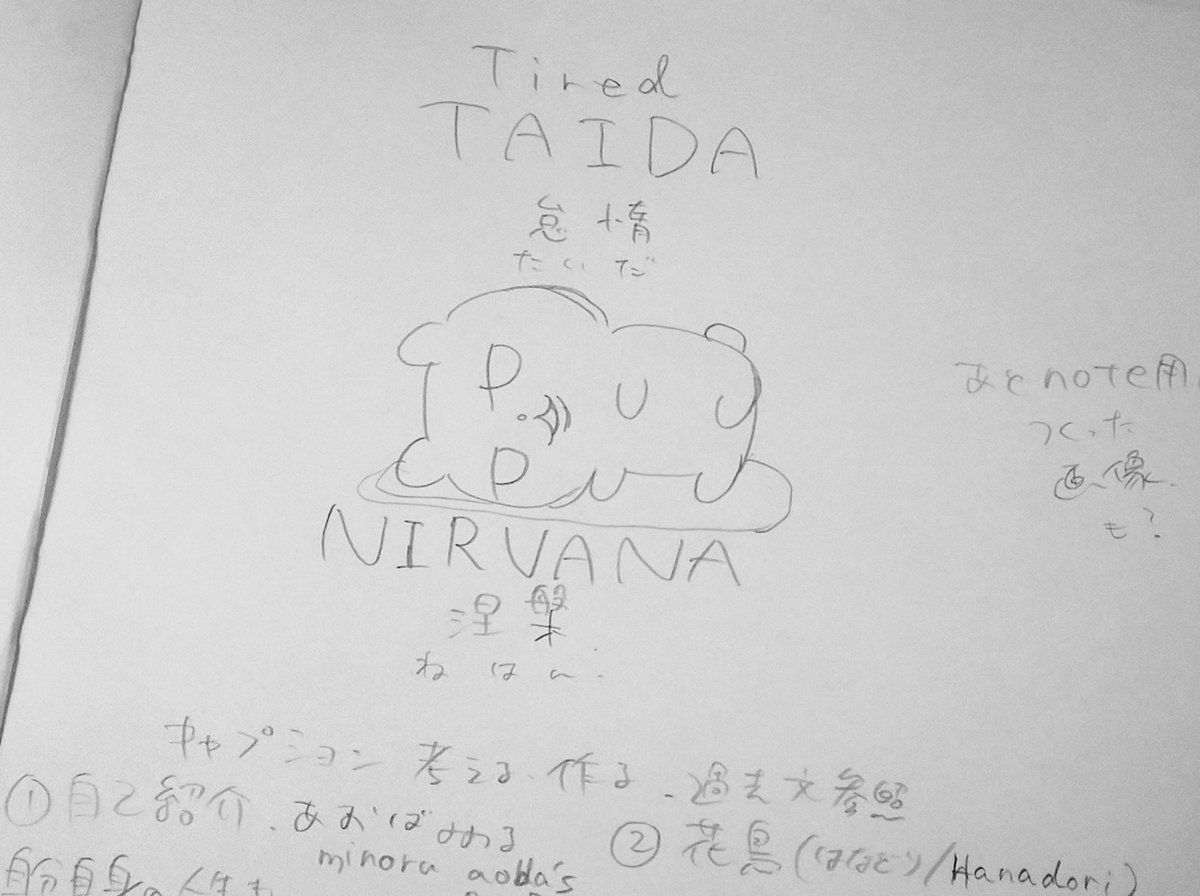 Tired
TAIDA
怠惰
たいだ
P U U
P U U
NIRVANA
涅槃
ねはん.
あと note用
つくった
画像
も?
キャプション 考える.作る.過去文参照
①自己紹介.あおばみのる
minoru aoba's
②花鳥(はなどり/Hanadori)
自分自身の人生も